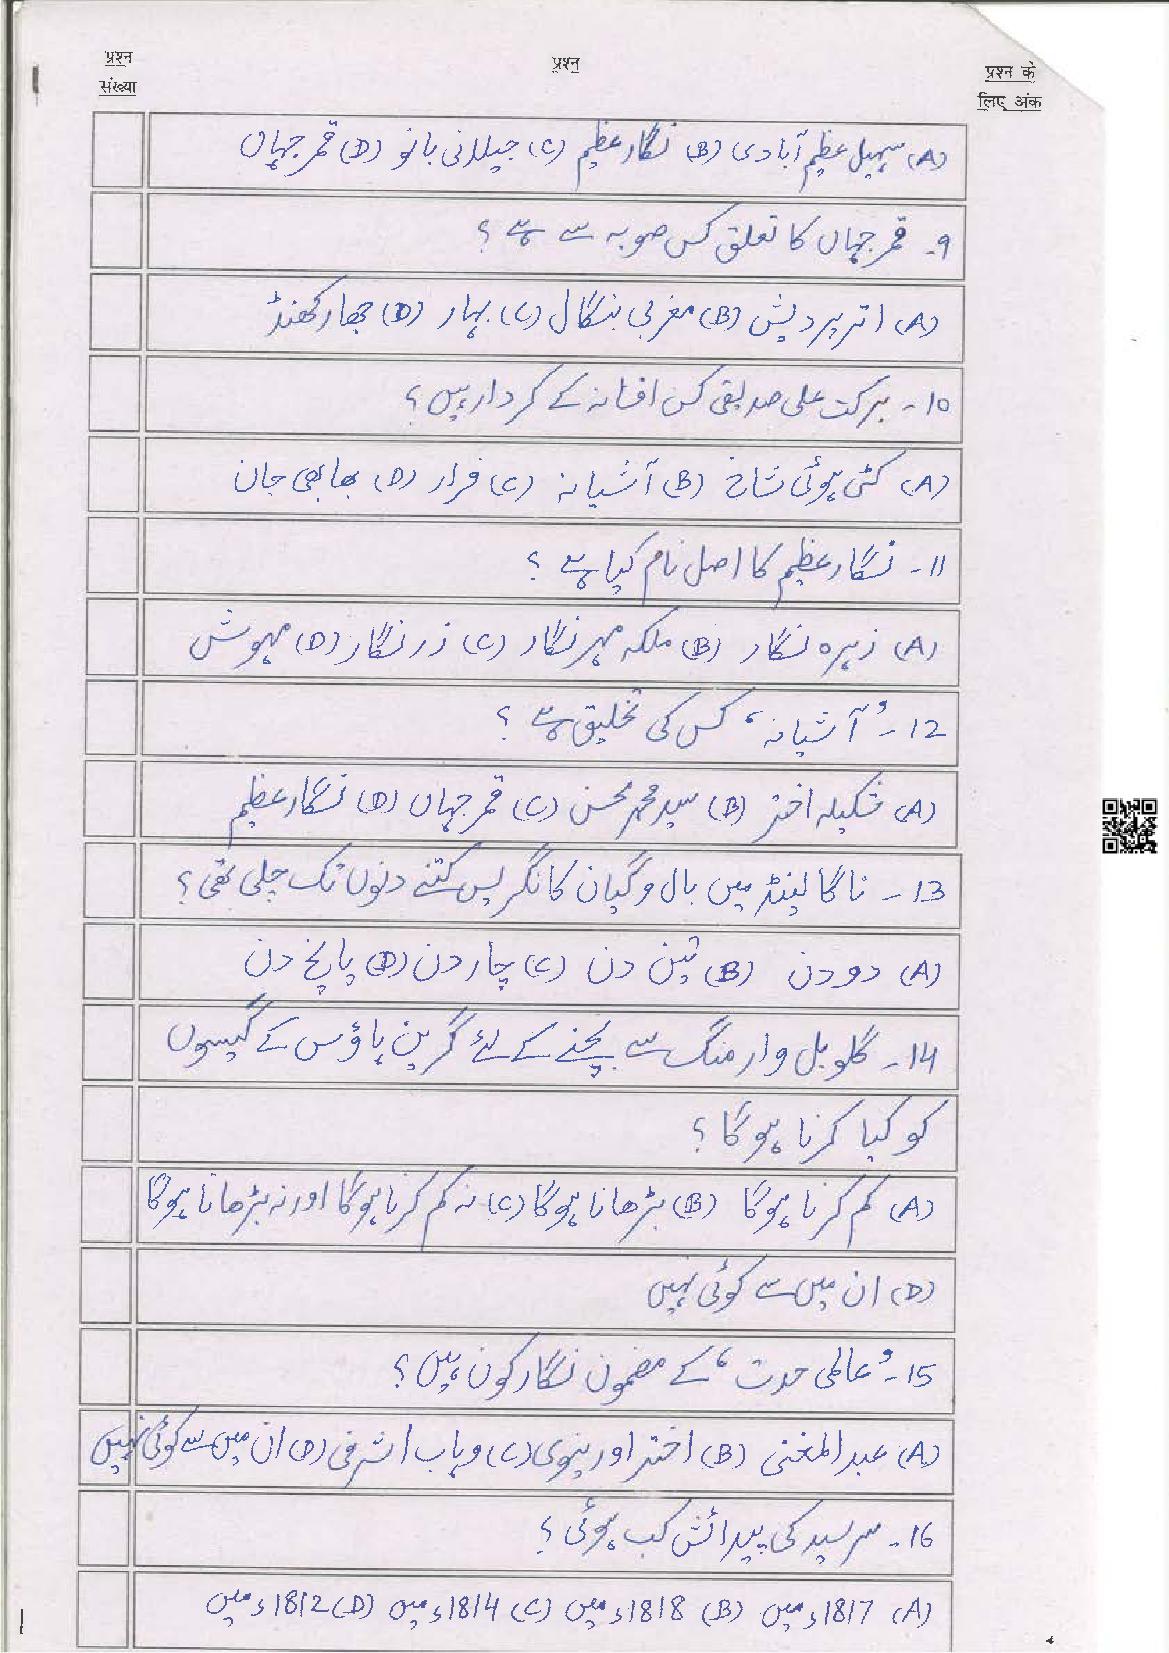 प्रश्न संख्या
प्रश्न
प्रश्न के लिए अंक
(A) سہیل عظیم آبادی (B) نگار عظیم (C) جیلانی بانو (D) قمر جہاں
9۔ قمر جہاں کا تعلق کس صوبہ سے ہے؟
(A) اتر پردیش (B) مغربی بنگال (C) بہار (D) جھارکھنڈ
10۔ برکت علی صدیقی کس افسانہ کے کردار ہیں؟
(A) کٹی ہوئی شاخ (B) آشیانہ (C) فرار (D) بھابھی جان
11۔ نگار عظیم کا اصل نام کیا ہے؟
(A) زہرہ نگار (B) ملکہ مہر نگار (C) زر نگار (D) مہوش
12۔ ’آشیانہ‘ کس کی تخلیق ہے؟
(A) شکیلہ اختر (B) سید محمد محسن (C) قمر جہاں (D) نگار عظیم
13۔ ناگالینڈ میں بال وگیان کانگریس کتنے دنوں تک چلی تھی؟
(A) دو دن (B) تین دن (C) چار دن (D) پانچ دن
14۔ گلوبل وارمنگ سے بچنے کے لئے گرین ہاؤس کے گیسوں
کو کیا کرنا ہوگا؟
(A) کم کرنا ہوگا (B) بڑھانا ہوگا (C) نہ کم کرنا ہوگا اور نہ بڑھانا ہوگا
(D) ان میں سے کوئی نہیں
15۔ ’عالمی حدت‘ کے مضمون نگار کون ہیں؟
(A) عبدالمغنی (B) اختر اورینوی (C) وہاب اشرفی (D) ان میں سے کوئی نہیں
16۔ سرسید کی پیدائش کب ہوئی؟
(A) 1817ء میں (B) 1818ء میں (C) 1814ء میں (D) 1812ء میں